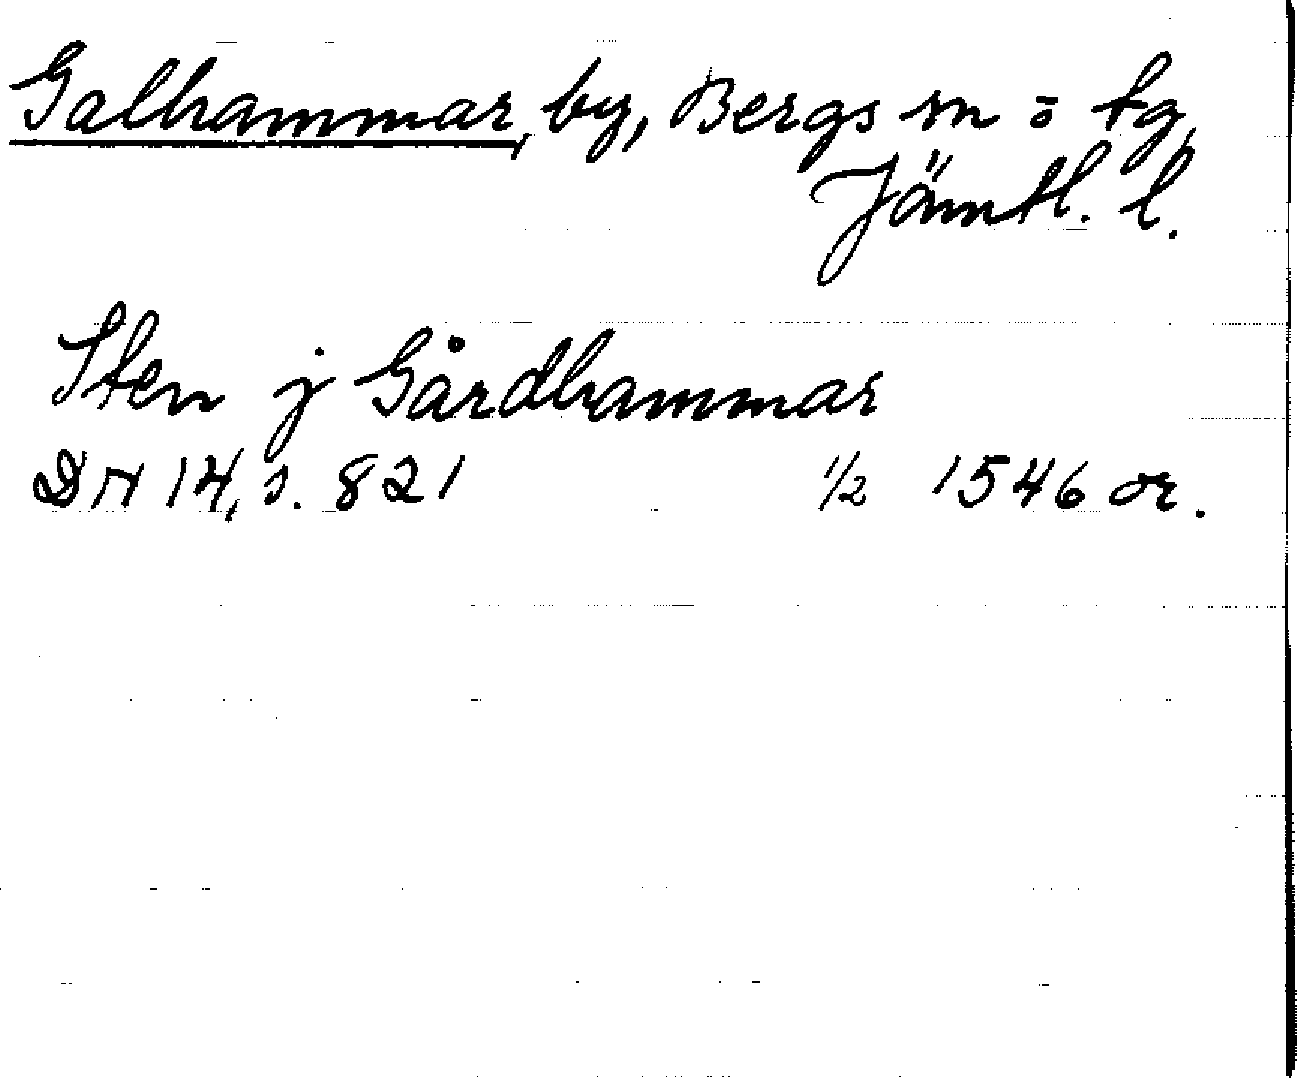 Galhammar, by, Bergs sn o tg,
Jämtl. l.
Sten j Gårdhammar
DN 14, s. 821 1/2 1546 or.